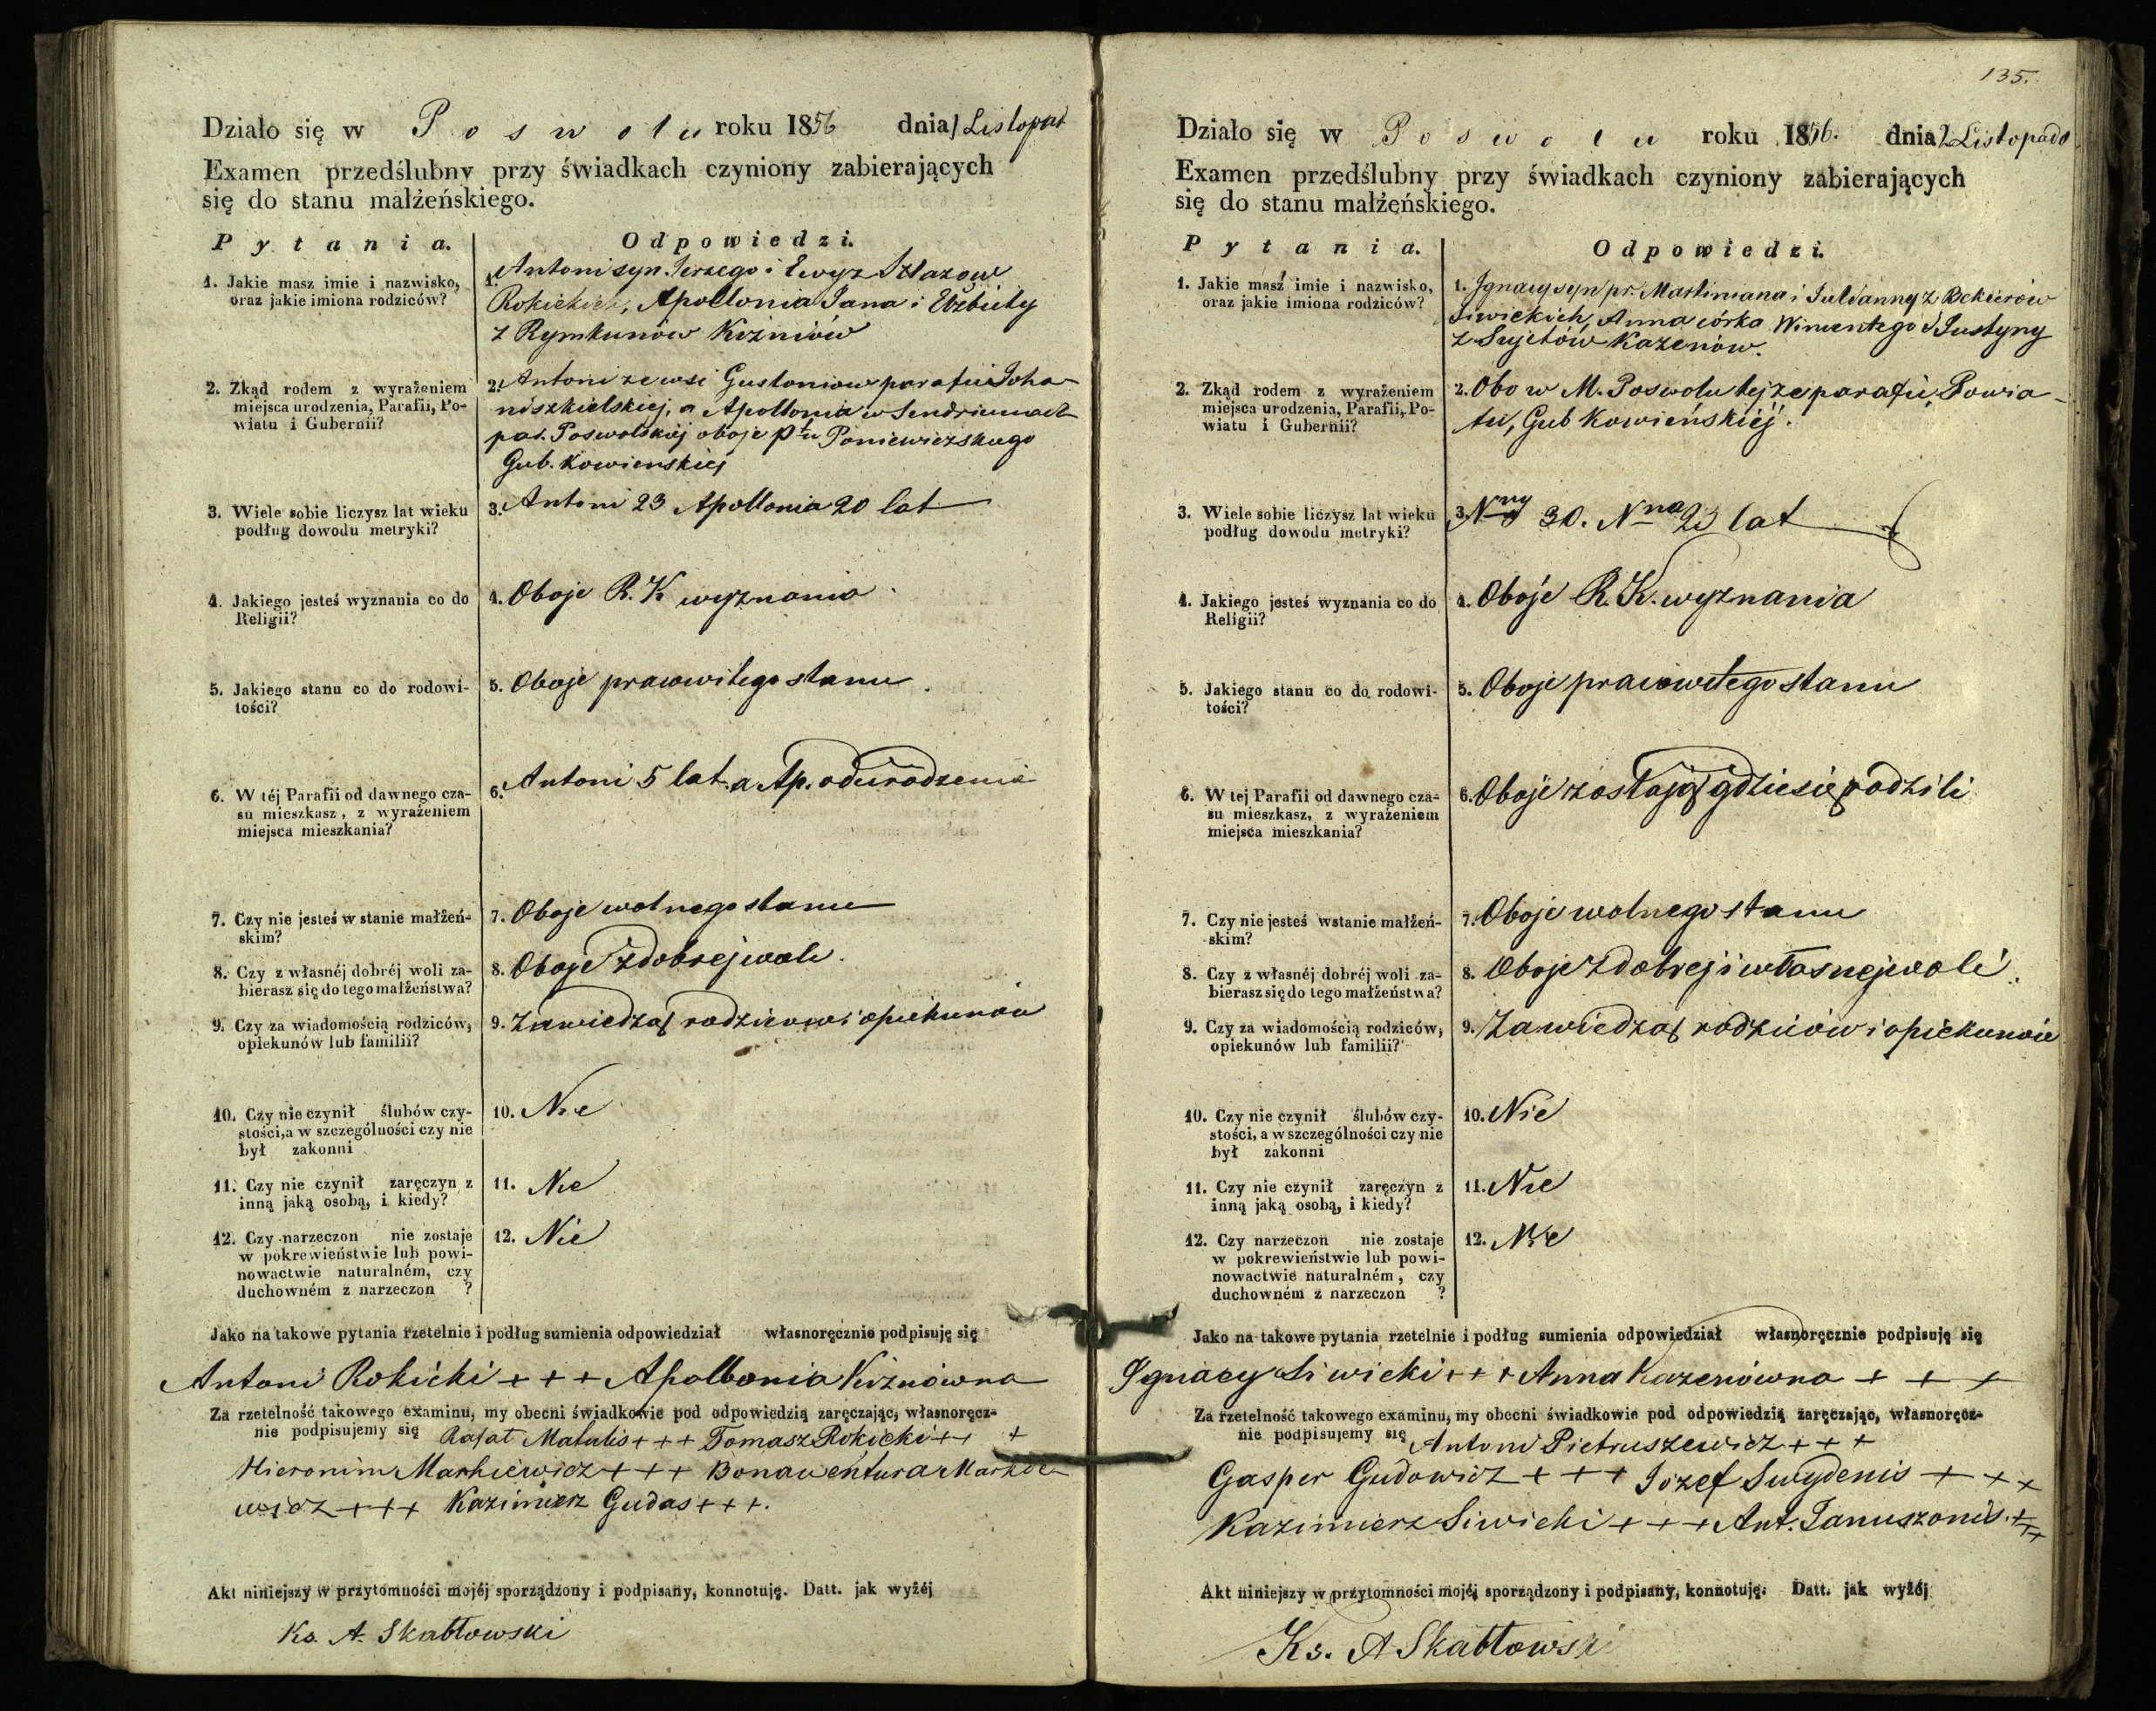 Działo się w Poswolu roku 1856 dnia 1 Listopad
Examen przedślubny przy świadkach czyniony zabierających
się do stanu małżeńskiego.
Pytania.
Odpowiedzi.
1. Jakie masz imie i nazwisko,
oraz jakie imiona rodziców?
1. Antoni syn Jerzego i Ewy z
Rokickich, Apollonia Jana i Elżbiety
z Rymkunów Kiźniów
2. Zkąd rodem z wyrażeniem
miejsca urodzenia, Parafii, Po-
wiatu i Gubernii?
2. Antoni ze wsi Gustoniow parafii Joha-
niszkielskiej, a Apollonia w
par. Poswolskiej oboje Ptu Poniewiezskiego
Gub. Kowienskiej
3. Wiele sobie liczysz lat wieku
podług dowodu metryki?
3. Antoni 23 Apollonia 20 lat
4. Jakiego jesteś wyznania co do
Religii?
4. Oboje R. K wyznania
5. Jakiego stanu co do rodowi-
tości?
5. Oboje prawowitego stanu
6. W téj Parafii od dawnego cza-
su mieszkasz, z wyrażeniem
miejsca mieszkania?
6. Antoni 5 lat. a Ap. od urodzenia
7. Czy nie jesteś w stanie małżeń-
skim?
7. Oboje wolnego stanu
8. Czy z własnéj dobréj woli za-
bierasz się do tego małżeństwa?
8. Oboje z dobrej woli.
9. Czy za wiadomością rodziców,
opiekunów lub familii?
9. Za wiedzą rodzicow i opiekunów
10. Czy nie czynił ślubów czy-
stości, a w szczególności czy nie
był zakonni
10. Nie
11. Czy nie czynił zaręczyn z
inną jaką osobą, i kiedy?
11. Nie
12. Czy narzeczon nie zostaje
w pokrewieństwie lub powi-
nowactwie naturalném, czy
duchowném z narzeczon ?
12. Nie
Jako na takowe pytania rzetelnie i podług sumienia odpowiedział własnoręcznie podpisuję się
Antoni Rokicki + + + Apollonia Kiźniówna
Za rzetelność takowego examinu, my obecni świadkowie pod odpowiedzią zaręczając, własnoręcz-
nie podpisujemy się Rafał Matulis + + + Tomasz Rokicki + + +
Hieronim Markiewicz + + + Bonawentura Markie-
wicz + + + Kazimierz Gudas + + +.
Akt niniejszy w przytomności mojéj sporządzony i podpisany, konnotuję. Datt. jak wyżéj
Ks. A. Skabłowski
135.
Działo się w Poswolu roku 1856. dnia Listopada
Examen przedślubny przy świadkach czyniony zabierających
się do stanu małżeńskiego.
Pytania.
Odpowiedzi.
1. Jakie masz imie i nazwisko,
oraz jakie imiona rodziców?
1. Ignacy syn pr. Martiniana i Julianny z Bekierów
Siwickich, Anna córka Wincentego i Justyny
z Sujetów Kazenów.
2. Zkąd rodem z wyrażeniem
miejsca urodzenia, Parafii, Po-
wiatu i Gubernii?
2. Obo w M. Poswolu tejże parafii, Powia-
tu, Gub Kowieńskiéj.
3. Wiele sobie liczysz lat wieku
podług dowodu metryki?
3. Nny 30. Nna 23 lat
4. Jakiego jesteś wyznania co do
Religii?
4. Oboje R. K. wyznania
5. Jakiego stanu co do rodowi-
tości?
5. Oboje prawowitego stanu
6. W tej Parafii od dawnego cza-
su mieszkasz, z wyrażeniem
miejsca mieszkania?
6. Oboje zostają gdzie się rodzili
7. Czy nie jesteś wstanie małżeń-
skim?
7. Oboje wolnego stanu
8. Czy z własnéj dobréj woli za-
bierasz się do tego małżeństwa?
8. Oboje z dobrej i własnej woli.
9. Czy za wiadomością rodziców,
opiekunów lub familii?
9. Za wiedzą rodziców i opiekunów
10. Czy nie czynił ślubów czy-
stości, a w szczególności czy nie
był zakonni
10. Nie
11. Czy nie czynił zaręczyn z
inną jaką osobą, i kiedy?
11. Nie
12. Czy narzeczon nie zostaje
w pokrewieństwie lub powi-
nowactwie naturalném, czy
duchowném z narzeczon ?
12. Nie
Jako na takowe pytania rzetelnie i podług sumienia odpowiedział własnoręcznie podpisuję się
Ignacy Siwicki + + + Anna Kazenówna + + +
Za rzetelność takowego examinu, my obecni świadkowie pod odpowiedzią zaręczając, własnoręcz-
nie podpisujemy się Antoni Pietruszewicz + + +
Gasper Gudowicz + + + Józef Swydenis + + +
Kazimierz Siwicki + + + Ant. Januszonis. + + +
Akt niniejszy w przytomności mojéj sporządzony i podpisany, konnotuję. Datt. jak wyżéj
Ks. A Skabłowski